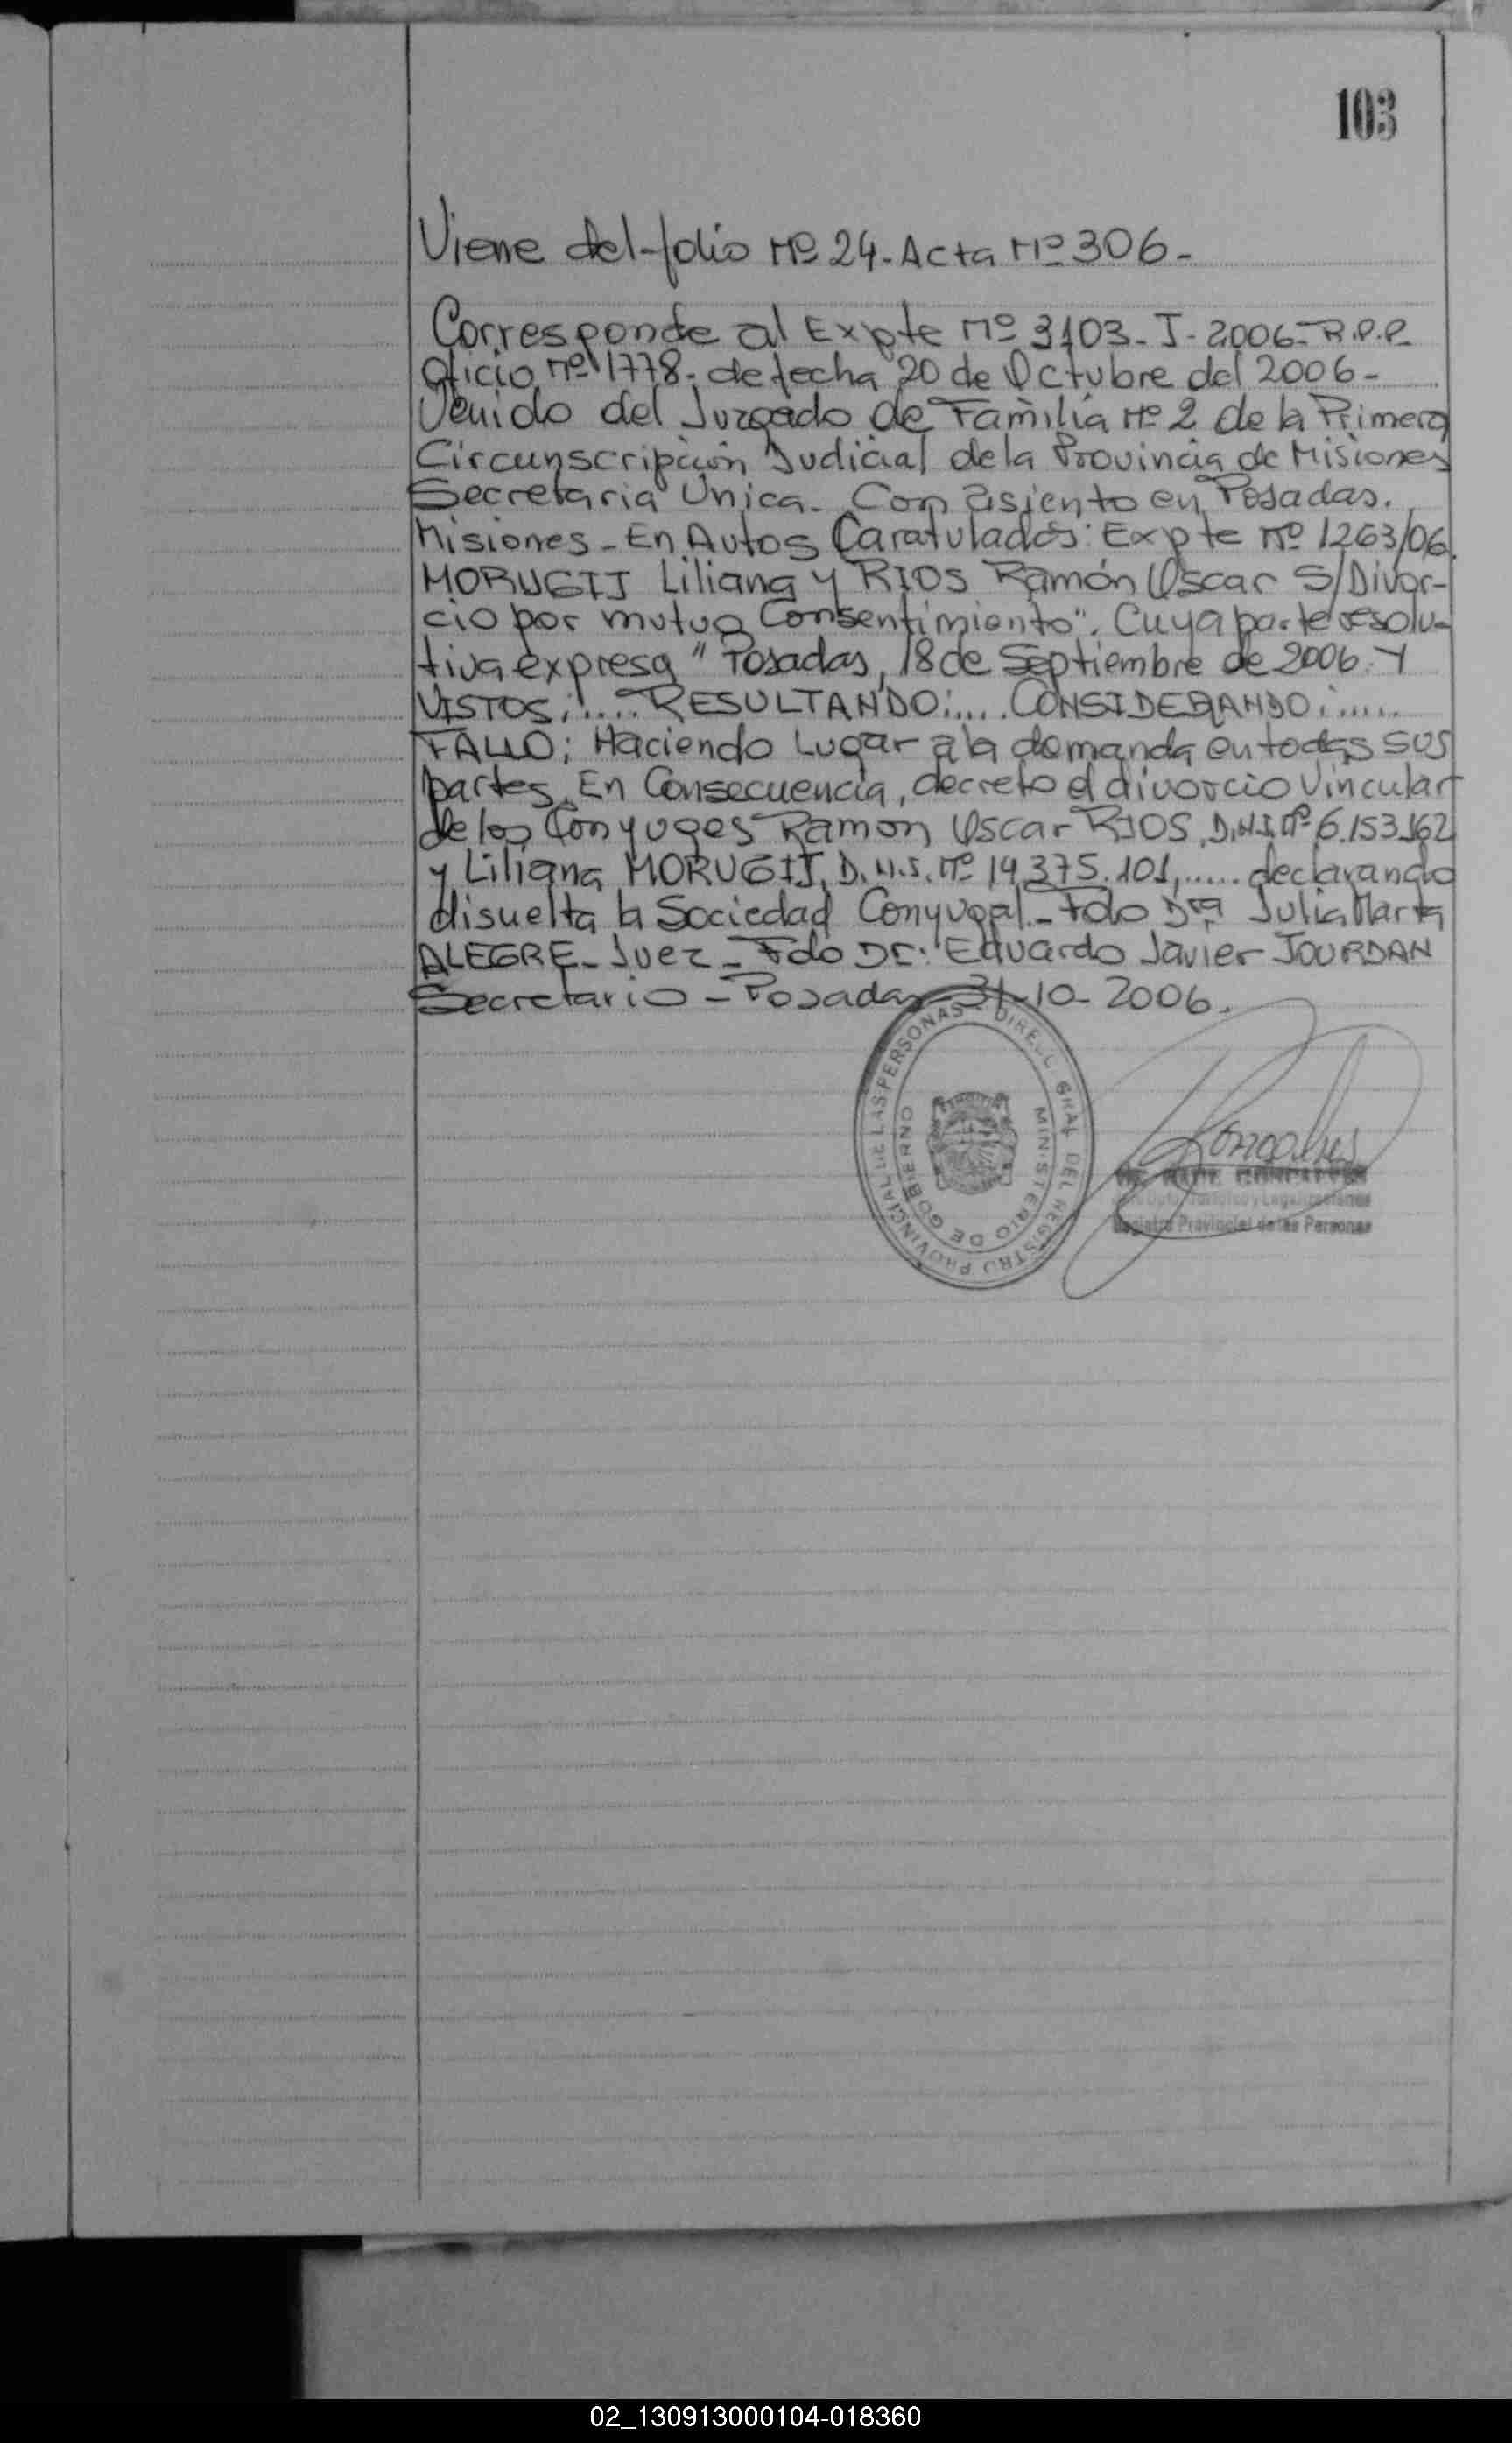 103
Viene del folio Nº 24. Acta Nº 306-
Corresponde al Expte Nº 3103- J- 2006- R.P.P.
Oficio nº 1778- de fecha 20 de Octubre del 2006-
Venido del Juzgado de Familia Nº 2 de la Primera
Circunscripción Judicial de la Provincia de Misiones
Secretaria Unica- Con asiento en Posadas.
Misiones- En Autos Caratulados: Expte Nº 1263/06.
MORUGIJ Liliana y RIOS Ramón Oscar S/Divor-
cio por mutuo Consentimiento". Cuya parte resolu-
tiva expresa " Posadas, 18 de Septiembre de 2006. Y
VISTOS;..... RESULTANDO:.... CONSIDERANDO:.....
FALLO; Haciendo Lugar a la demanda en todas sus
partes. En Consecuencia, decreto el divorcio Vincular
de los Conyuges Ramon Oscar RIOS, D.N.I. nº 6.153.162
y Liliana MORUGIJ, D.N.I. Nº 14.375.101,..... declarando
disuelta la Sociedad Conyugal.- Fdo Dra Julia Marta
ALEGRE- Juez- Fdo Dr: Eduardo Javier JOURDAN
Secretario - Posadas- 31-10-2006.
DIREC. GRAL DEL REGISTRO PROVINCIAL DE LAS PERSONAS
MINISTERIO DE GOBIERNO
Goncalves
GONCALVES
Registro Provincial de las Personas
02_130913000104-018360